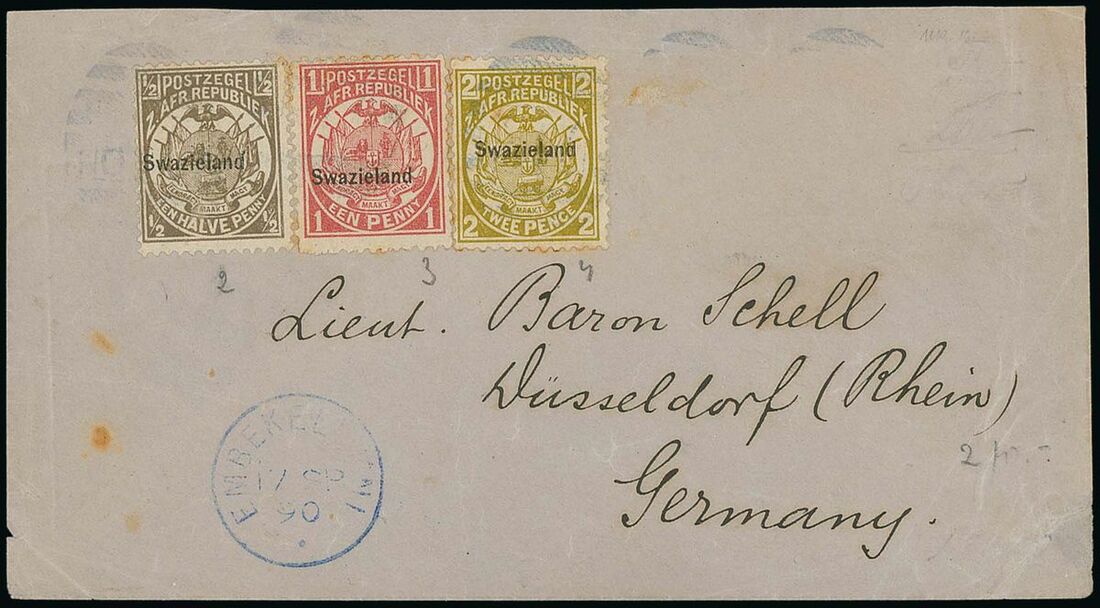 ½ POSTZEGEL ½
Z AFR. REPUBLIEK
Swazieland
EENDRAGT MAAKT MAGT
EEN HALVE PENNY
½ ½
1 POSTZEGEL 1
Z AFR. REPUBLIEK
Swazieland
EENDRAGT MAAKT MAGT
1 EEN PENNY 1
2 POSTZEGEL 2
Z AFR. REPUBLIEK
Swazieland
EENDRAGT MAAKT MAGT
2 TWEE PENCE 2
2 3 4
Lieut. Baron Schell
Düsseldorf (Rhein)
Germany.
EMBEKEL NI
17 SP
90